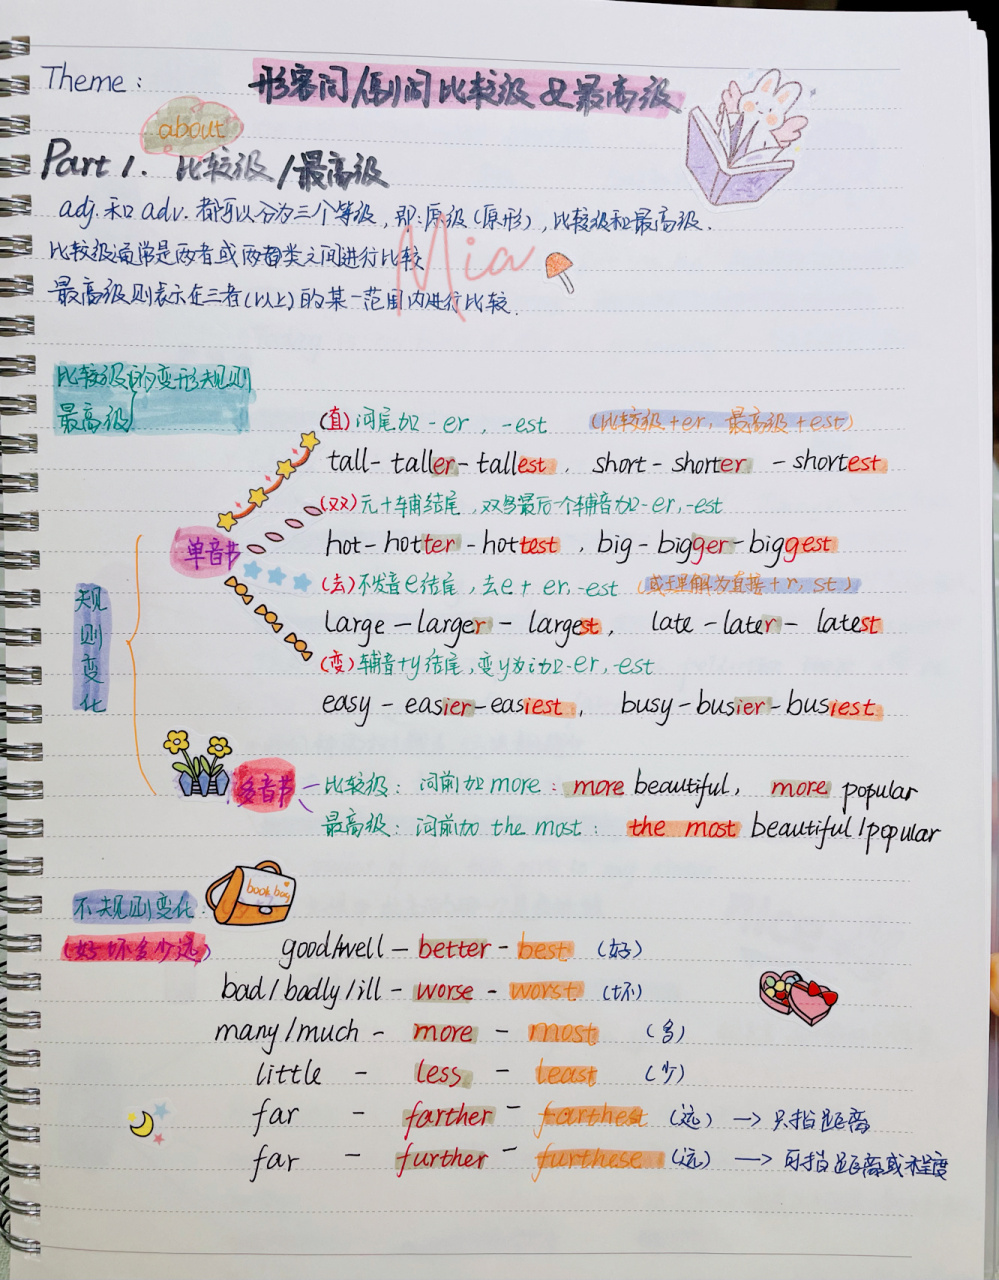 Theme: 形容词/副词比较级及最高级
about
Part 1. 比较级/最高级
adj. 和 adv. 都可以分为三个等级, 即:原级(原形), 比较级和最高级.
比较级通常是两者或两者类之间进行比较
Mia
最高级则表示在三者(以上)的某一范围内进行比较.
比较级的变形规则
最高级
(直)词尾加-er, -est (比较级+er, 最高级+est)
tall-taller-tallest, short-shorter-shortest
(双)元+辅结尾, 双写最后一个辅音加-er,-est
单音节
hot-hotter-hottest, big-bigger-biggest
(去)不发音e结尾, 去e+er,-est (或理解为直接+r, st)
规则变化
large-larger-largest, late-later-latest
(变)辅音+y结尾, 变y为i加-er, -est
easy-easier-easiest, busy-busier-busiest
多音节
比较级: 词前加more: more beautiful, more popular
最高级: 词前加 the most: the most beautiful/popular
book bag
不规则变化:
(好坏多少远)
good/well-better-best (好)
bad/badly/ill-worse-worst (坏)
many/much-more-most (多)
little-less-least (少)
far-farther-farthest (远) → 只指距离
far-further-furthese (远) → 可指距离或程度